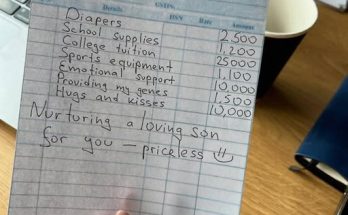 Details HSN Rate Amount
Diapers 2,500
School supplies 1,200
College tuition 25000
Sports equipment 1,100
Emotional support 10,000
Providing my genes 1,500
Hugs and kisses 10,000
Nurturing a loving son
for you — priceless